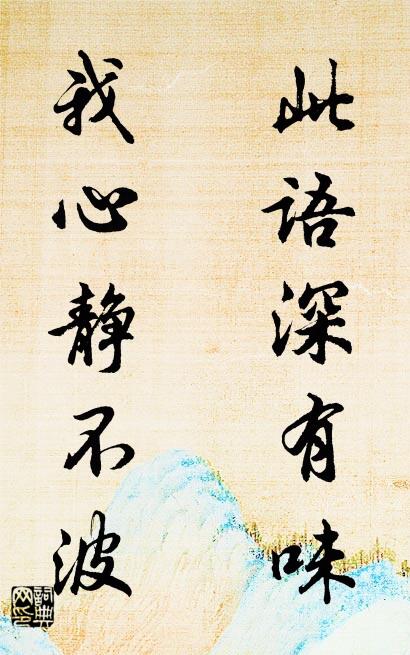 此语深有味
我心静不波
詞典网印